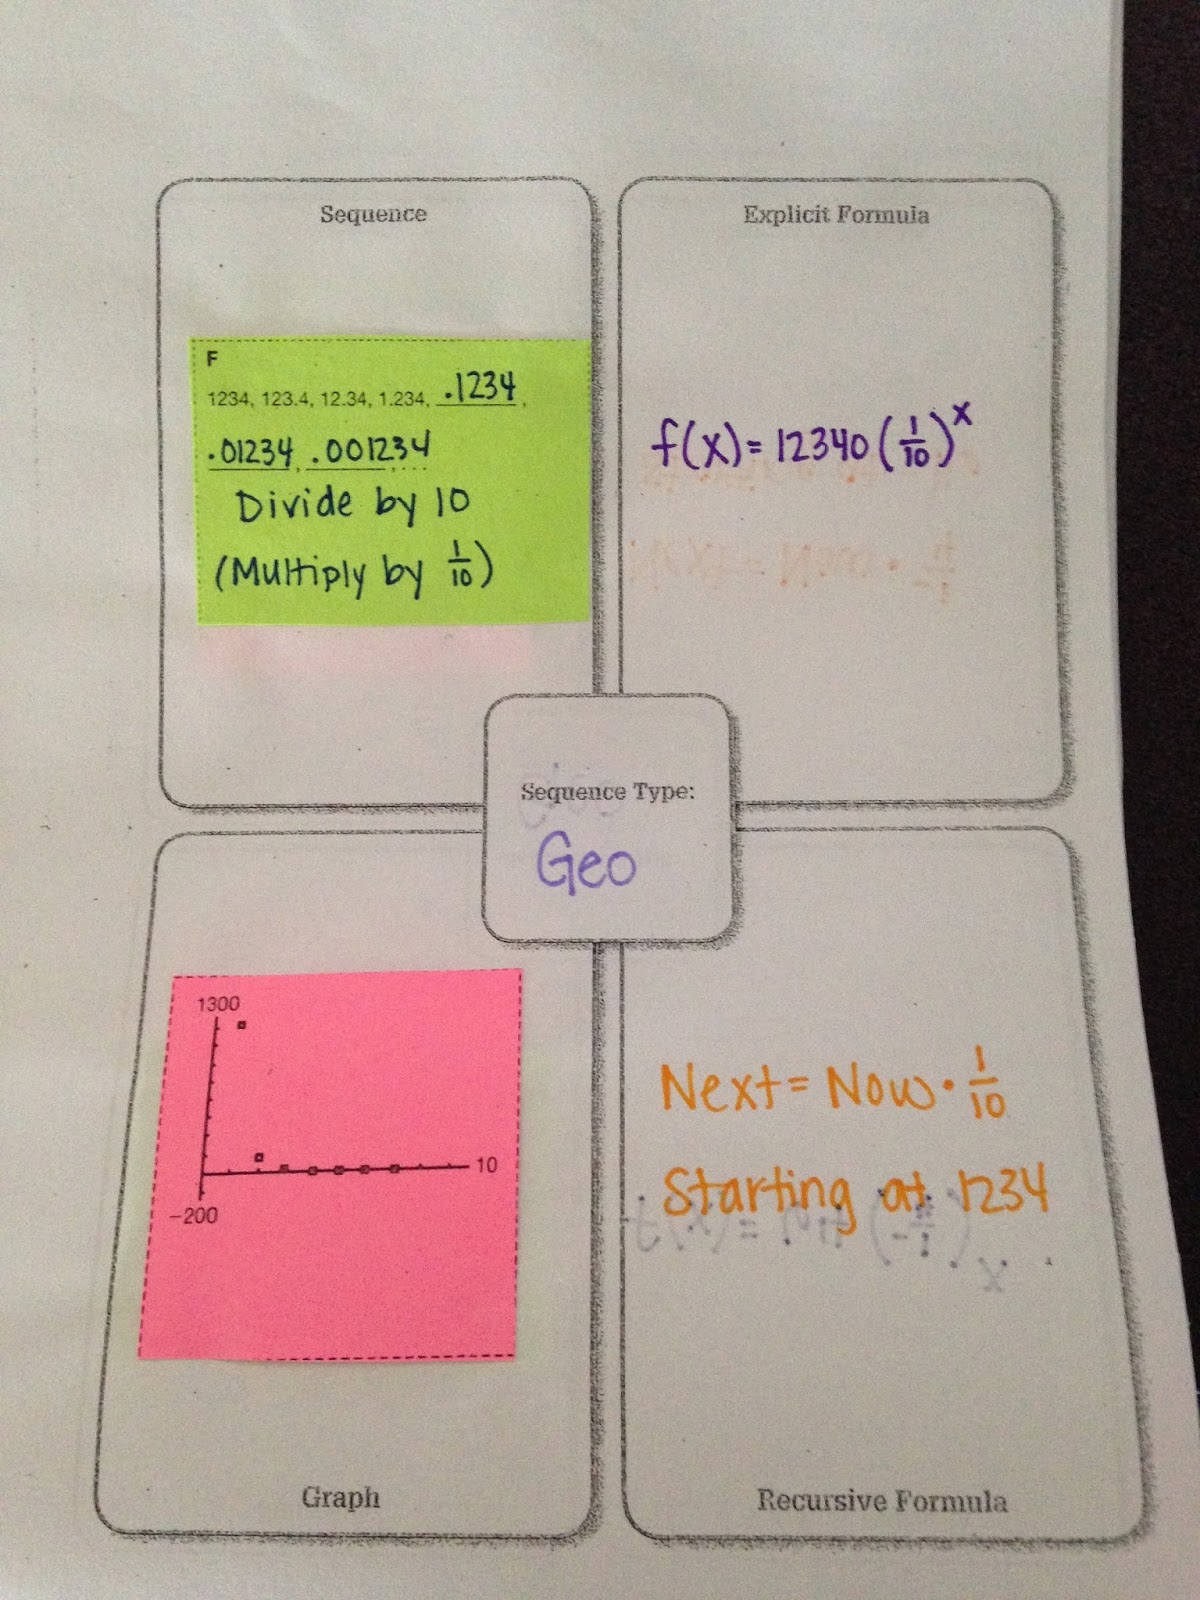 Sequence
F
1234, 123.4, 12.34, 1.234, .1234,
.01234, .001234...
Divide by 10
(Multiply by 1/10)
Explicit Formula
f(x) = 12340 (1/10)^x
Sequence Type:
Geo
1300
10
-200
Graph
Next = Now · 1/10
Starting at 1234
Recursive Formula